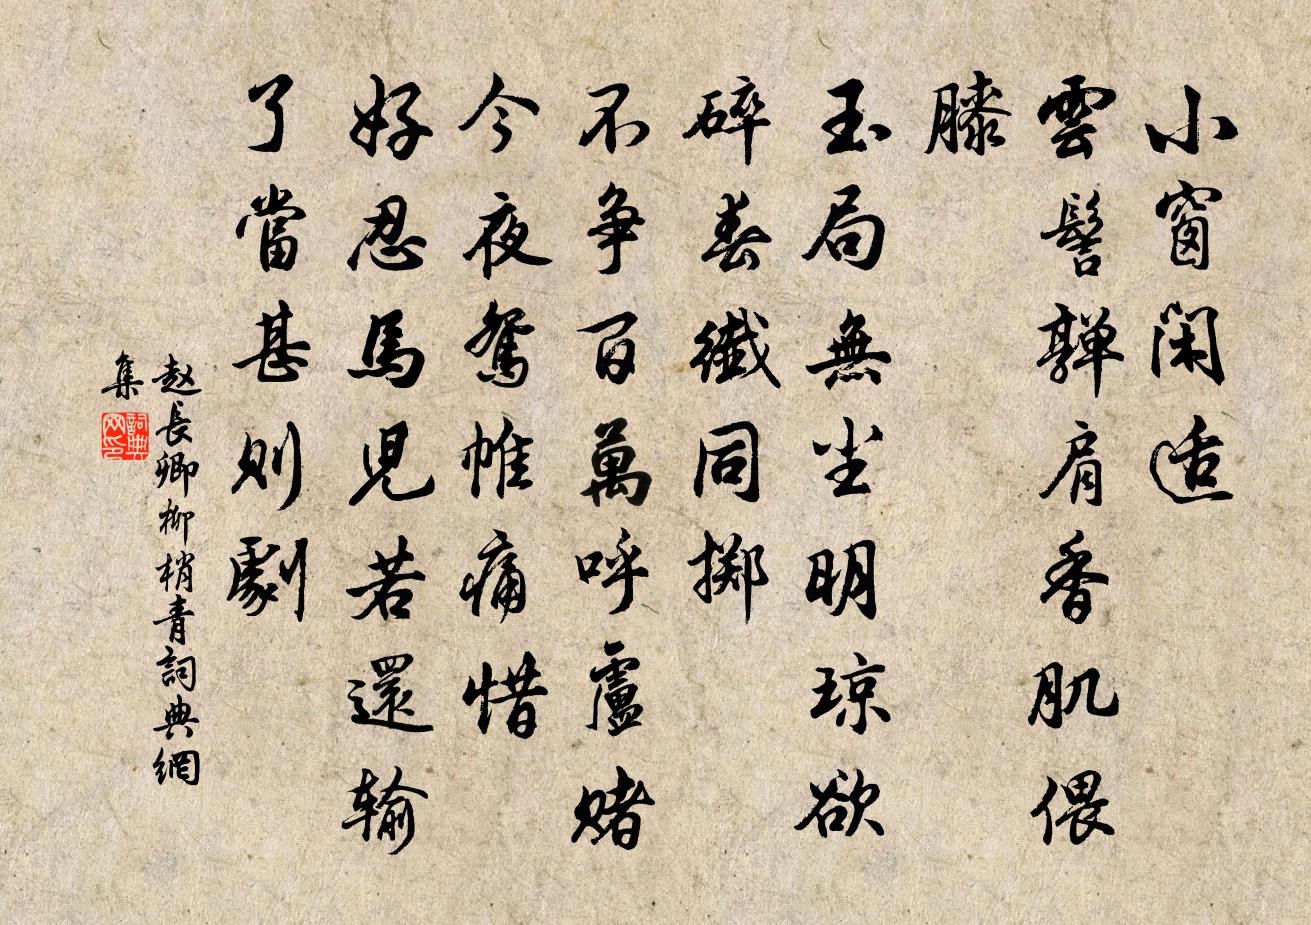 小窗閑適
雲髻嚲肩香肌偎
膝
玉局無尘明琼欲
碎春纖同掷
不争百萬呼盧賭
今夜鴛帷痛惜
好忍馬児若還输
了當甚則劇
赵長卿柳梢青詞典網
集
詞典网印